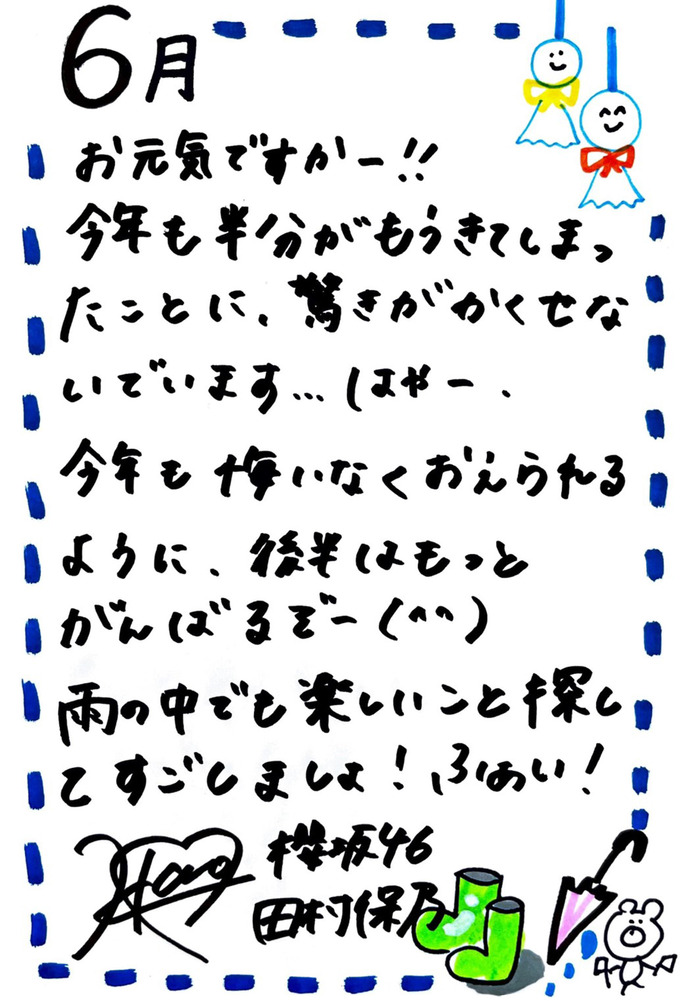 6月
お元気ですかー!!
今年も半分がもうきてしまっ
たことに、驚きがかくせな
いでいます…はやー、
今年も悔いなくおえられる
ように、後半はもっと
がんばるぞー(^^)
雨の中でも楽しいこと探し
てすごしましょ!ふぁい!
櫻坂46
田村保乃